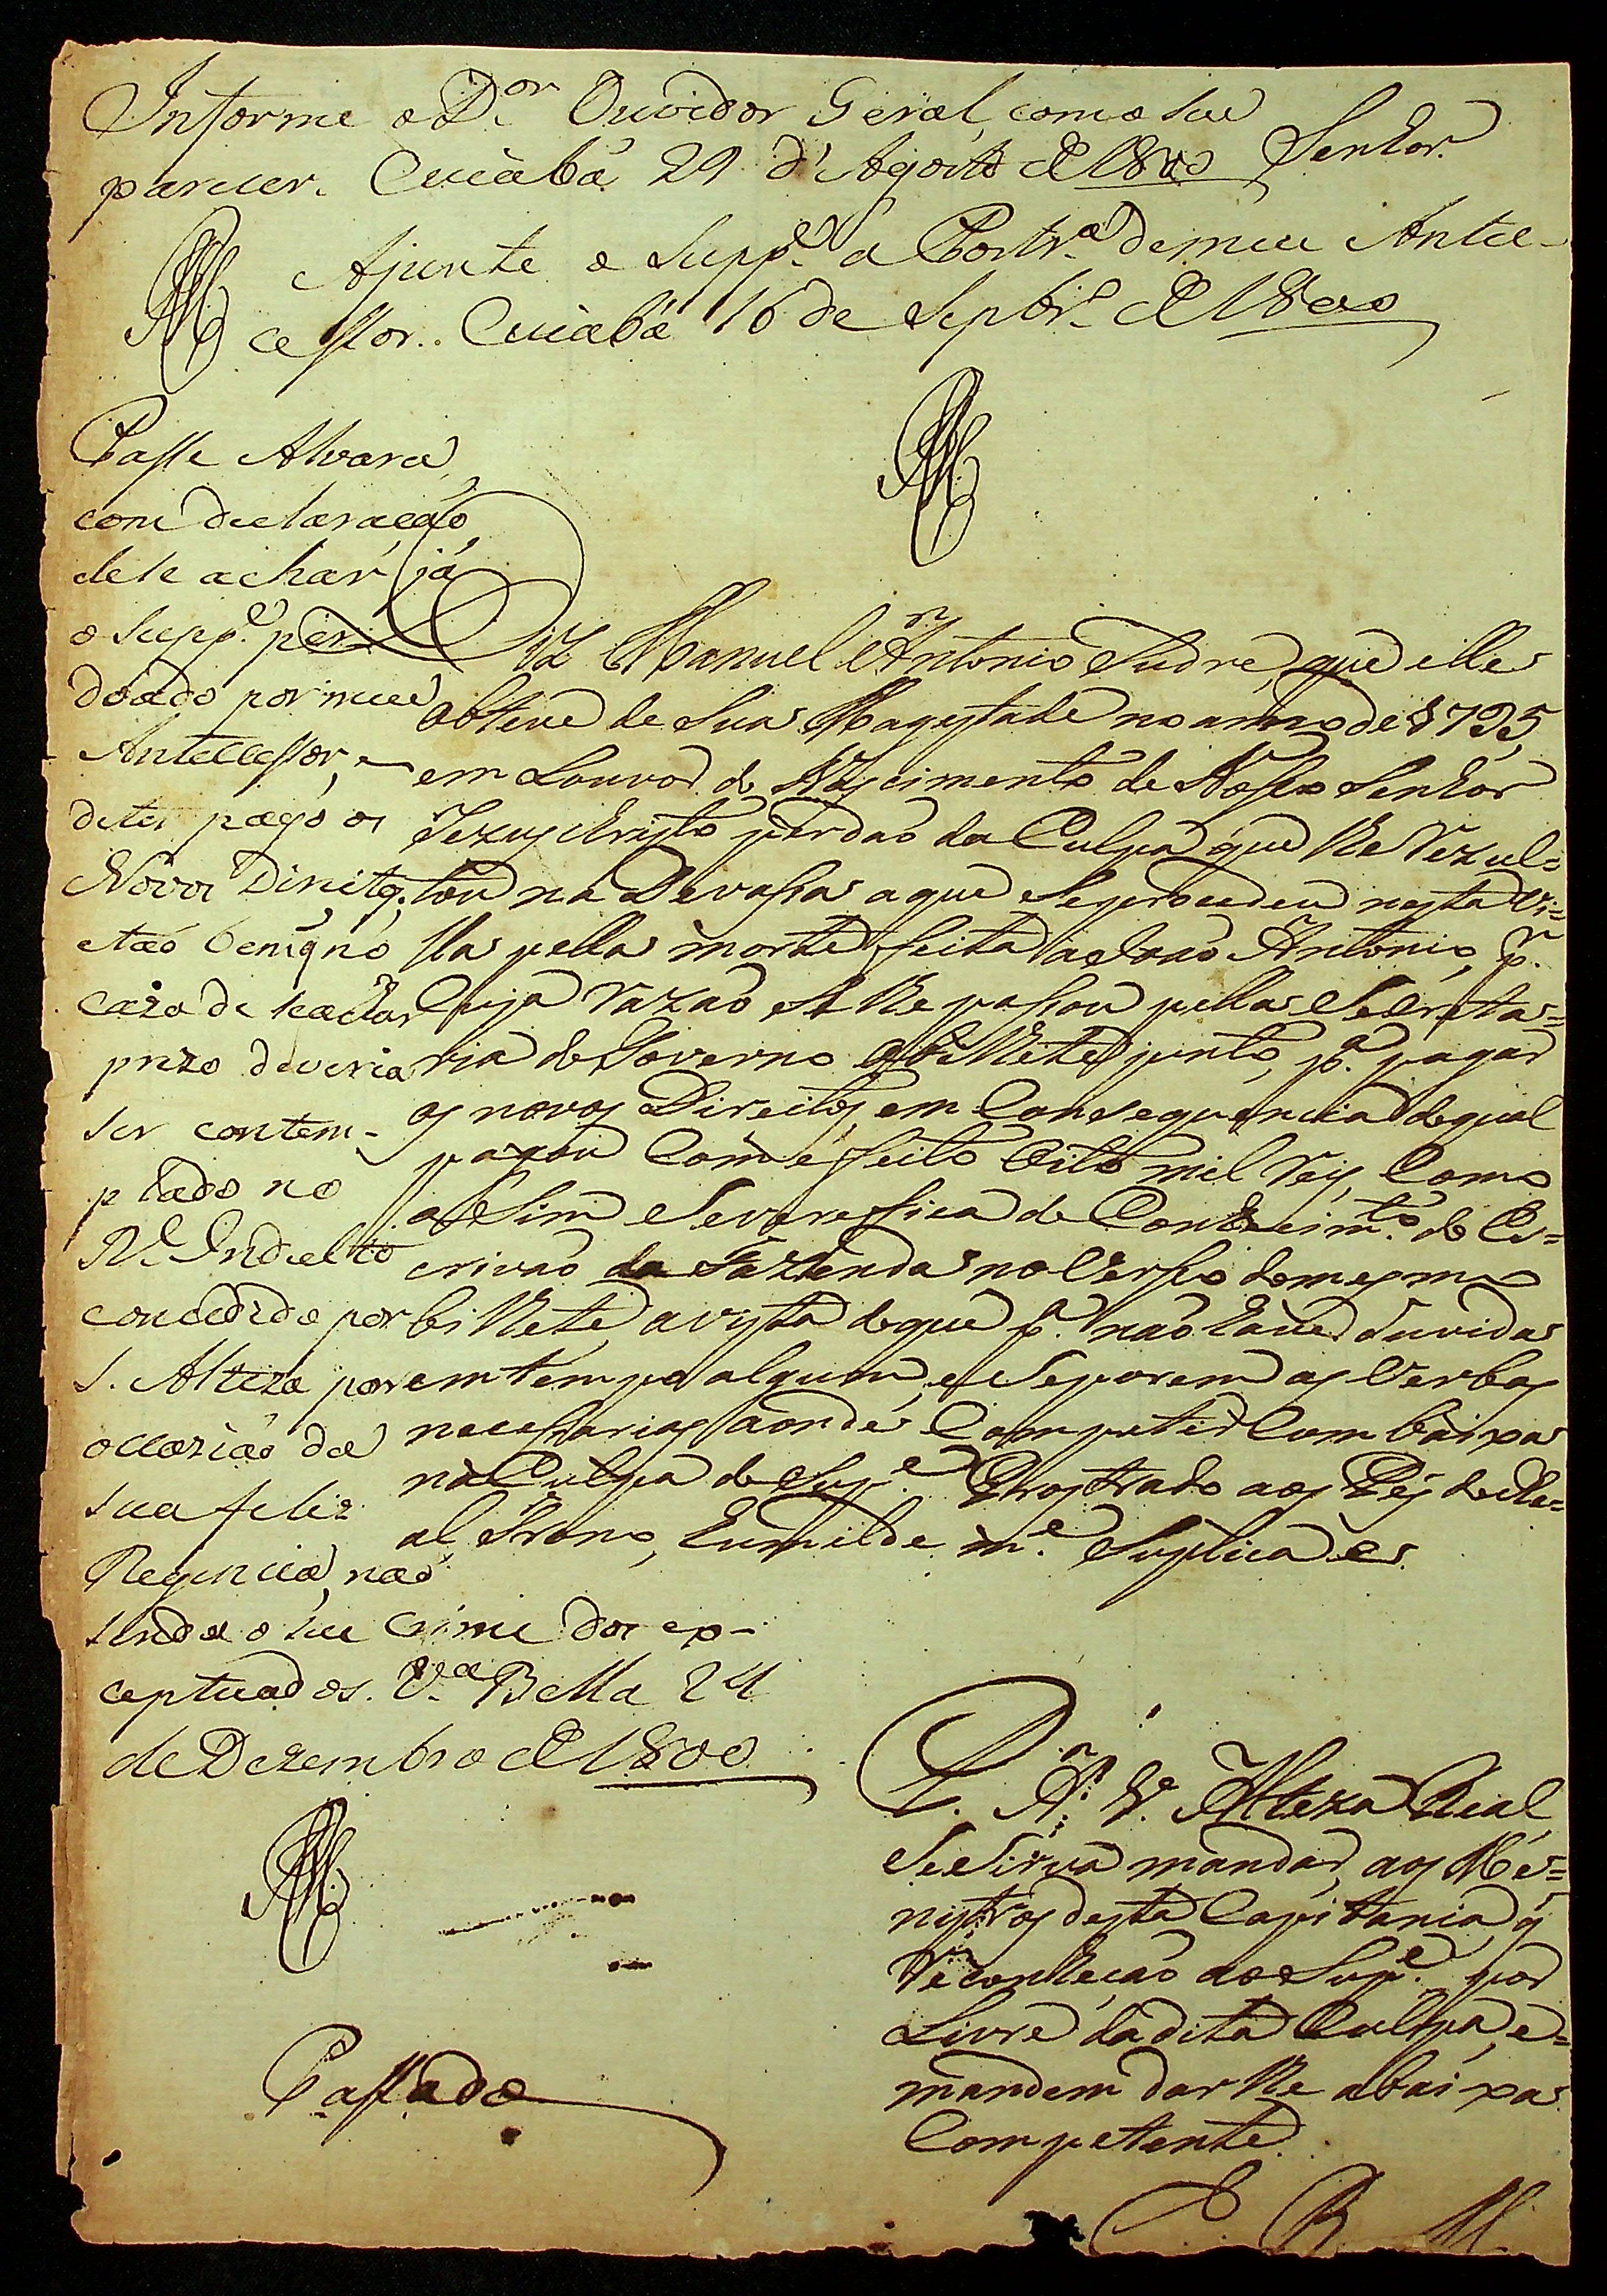 Informe o D.or Ouvidor Geral, com o seu
parecer. Cuiabá 29 d'Agosto de 1800
Senhor.
Ajunte o Supp.e a Portr.a de meu Ante-
cessor.. Cuiabá 16 de Septbr.o de 1800
Passe Alvará,
com declaração,
de se achar já
o Supp.e per-
doado por meu
Antecessor, e
de ter pago os
Novos Direitos;
e tão benigno
cazo de se achar
prezo deveria
ser contem-
plado no
R.l Indulto
concedido por
S. Alteza por
occazião da
sua feliz
Regencia, não
sendo o seu crime dos ex-
ceptuados. V.a Bella 24
de Dezembro de 1800
Passado
Diz Manuel Antonio Sudré, que elle
obteve de Sua Magestade no anno de 1795,
em Louvor do Nascimento de Nosso Senhor
Jezus Cristo perdaõ da Culpa que lhe rezul=
tou na Devassa a que se procedeu nesta Vi=
lla pella morte feita a Joaõ Antonio, p.r
cuja razaõ se lhe passou pella Secreta=
ria do Governo o bilhete junto, p.a pagar
os novos Direitos, em Consequencia do qual
pagou Com effeito Oito mil reis, Como
assim se verefica do Conhecim.to do Es=
crivaõ da Fazenda no Verso do mesmo
bilhete, a vista do que p.a naõ haver duvida
em tempo algum, e se porem as Verbas
necessarias aonde Competir Com baixa
na Culpa do Sup.e Prostrado aos Pés do Re=
al Trono, humilde m.e Suplica e
P. A V. Alteza Rial
Se Sirva mandar, aos Me=
nistros desta Capitania q̃
reconheçaõ ao Sup.e por
Livre da dita Culpa, e=
mandem dar lhe a baixa
Competente.
E. R. M.